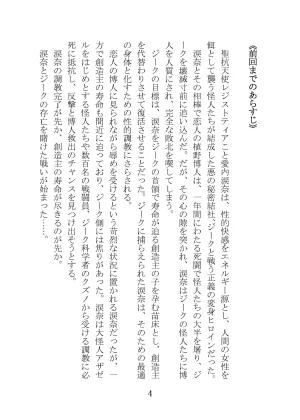 《前回までのあらすじ》
聖抗天使レジストティアこと愛内涙奈は、性的快感をエネルギー源とし、人間の女性を
餌として襲う怪人たちが結成した悪の秘密結社・ジークと戦う正義の変身ヒロインだった。
涙奈とその相棒で恋人の植野博人は、一年間にわたる死闘で怪人たちの大半を屠り、ジ
ークを壊滅寸前に追い込んだ。だが、その心の隙を突かれ、涙奈はジークの怪人たちに博
人を人質にされ、完全な敗北を喫してしまう。
ジークの目的は、涙奈をジークの首領で寿命が迫る創造主の子を孕む苗床とし、創造主
を代替わりさせて復活させることだった。ジークに捕らえられた涙奈は、そのための最適
の身体と化すための性的調教にさらされる。
恋人の博人に見られながら辱めを受けるという苛烈な状況に置かれる涙奈だったが、一
方で創造主の寿命も間近に迫っており、ジーク側には焦りがあった。涙奈は大怪人アザゼ
ルをはじめとする怪人たちや数百名の戦闘員、ジーク科学者のクズノから受ける調教に必
死に抵抗し、反撃と博人救出のチャンスを見つけ出そうとする。
涙奈の調教完了が先か、創造主の寿命が尽きるのが先か。
涙奈とジークの存亡を賭けた戦いが始まった……。
4